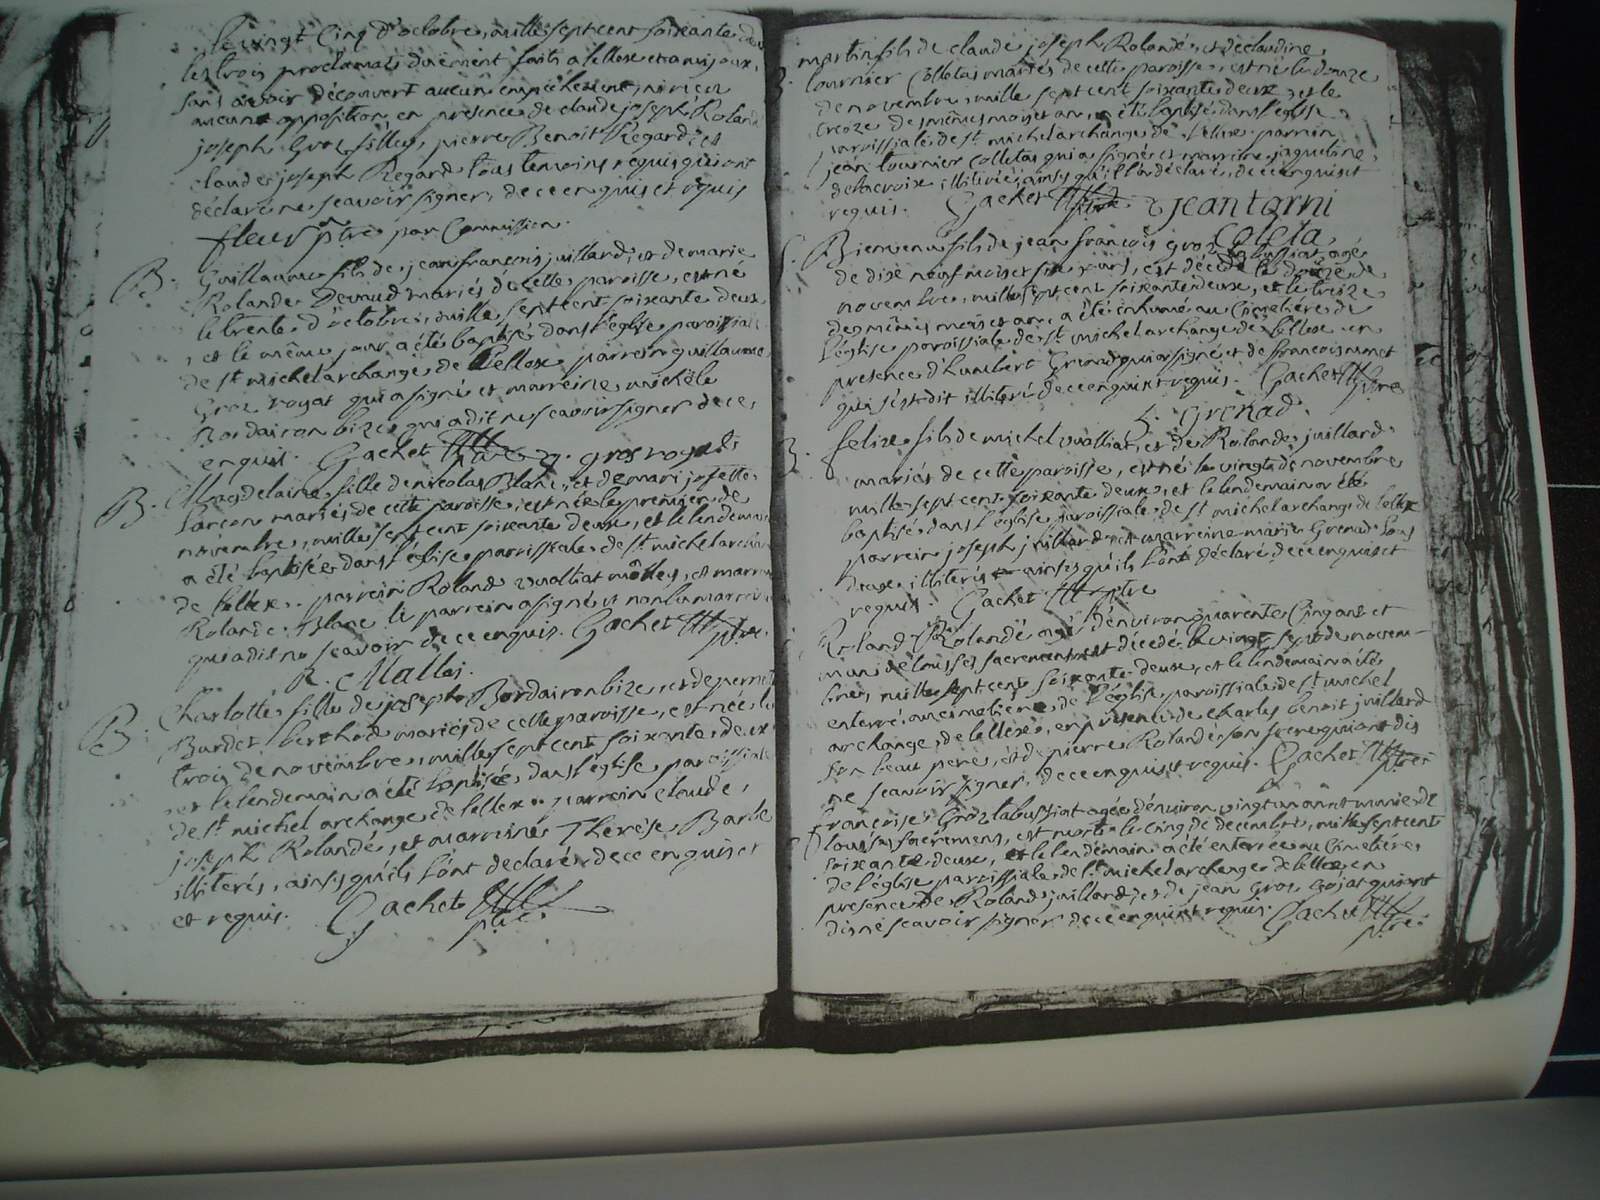 le vingt cinq d'octobre, mille sept cent soixante deux
les trois proclamats duement faits a lellex et a mijoux,
sans avoir découvert aucun empêchement, ni reçu
aucune opposition en presence de claude joseph Roland
joseph Groz fillex, pierre Benoit Regard, et
claude joseph Regard tous temoins requis qui ont
déclaré ne scavoir signer, de ce enquis et requis
fleur ptre par Commission.
B. Guillaume fils de jean françois juillard, et de marie
Rolande Devaud mariés de cette paroisse, est né
le trente d'octobre, mille sept cent soixante deux
, et le même jour a été baptisé dans l'église paroissiale
de st michel archange de lellex parrein guillaume
Groz royat qui a signé et marreine michèle
Bordairon bize qui a dit ne scavoir signer de ce
enquis. Gachet ptre g. gros royat
B. Magdelaine fille de nicolas Blanc, et de mari josette
Larçon mariés de cette paroisse, est née le premier de
novembre, mille sept cent soixante deux, et le lendemain
a été baptisée dans l'église paroissiale de st michel archange
de lellex. parrein Roland vualliat môllex, et marreine
Rolande Blanc le parrein a signé et non la marreine
qui a dit ne scavoir de ce enquis. Gachet ptre.
R. Mallei.
B. Charlotte fille de joseph Bordairon bize, et de pernette
Burdet berthod mariés de cette paroisse, est née le
trois de novembre, mille sept cent soixante deux
et le lendemain a été baptisée dans l'église paroissiale
de st michel archange de lellex. parrein claude
joseph Rolandé, et marreine Therése Barbe
illiterés, ainsi qu'ils l'ont declaré de ce enquis et
et requis. Gachet ptre.
martin fils de claude joseph Rolandé, et de claudine
B. tournier Colletas mariés de cette paroisse est né le douze
de novembre, mille sept cent soixante deux, et le
treize des mêmes mois et an, a été baptisé dans l'eglise
paroissiale de st michel archange de lellex. parrein
jean tournier colletas qui a signé et marreine jaqueline
delacroix illiterée, ainsi qu'ill'a déclaré, de ce enquis et
requis. Gachet ptre jean torni
coleta
S. Bienvenu fils de jean françois groz labussiat agé
de dix neuf mois et six jours, est décédé le douze de
novembre, mille sept cent soixante deux, et le treize
des mêmes mois et an, a été inhumé au Cimetière de
l'église paroissiale de st michel archange de lellex en
presence d'humbert Grenad qui a signé et de francois
qui s'est dit illiteré de ce enquis et requis. Gachet ptre
h. Grenad.
B. felix fils de michel vualliat, et de Rolande juillard
mariés de cette paroisse, est né le vingt de novembre
mille sept cent soixante deux, et le lendemain a été
baptisé dans l'église paroissiale de st michel archange de lellex
parrein joseph juillard et marreine marie Grenad tous
deux illiterés ainsi qu'ils l'ont déclaré de ce enquis et
requis. Gachet ptre
Roland Rolandé agé d'environ quarente Cinq ans et
muni de tous ses sacremens est décédé le vingt sept de novem-
bre, mille sept cent soixante deux, et le lendemain a été
enterré au cimetière de l'église paroissiale de st michel
archange de lellex, en presence de charles benoit juillard
son beau pere, et de pierre Rolandé son frere qui ont dis
ne scavoir signer, de ce enquis et requis. Gachet ptre
françoise Groz labussiat agée d'environ vingt un an et munie de
tous ses sacremens, est morte le cinq de decembre, mille sept cent
soixante deux, et le lendemain a été enterrée au Cimetière
de l'église paroissiale de st michel archange de lellex en
presence de Roland juillard, et de jean Groz royat qui ont
dis ne scavoir signer de ce enquis et requis. Gachet ptre.